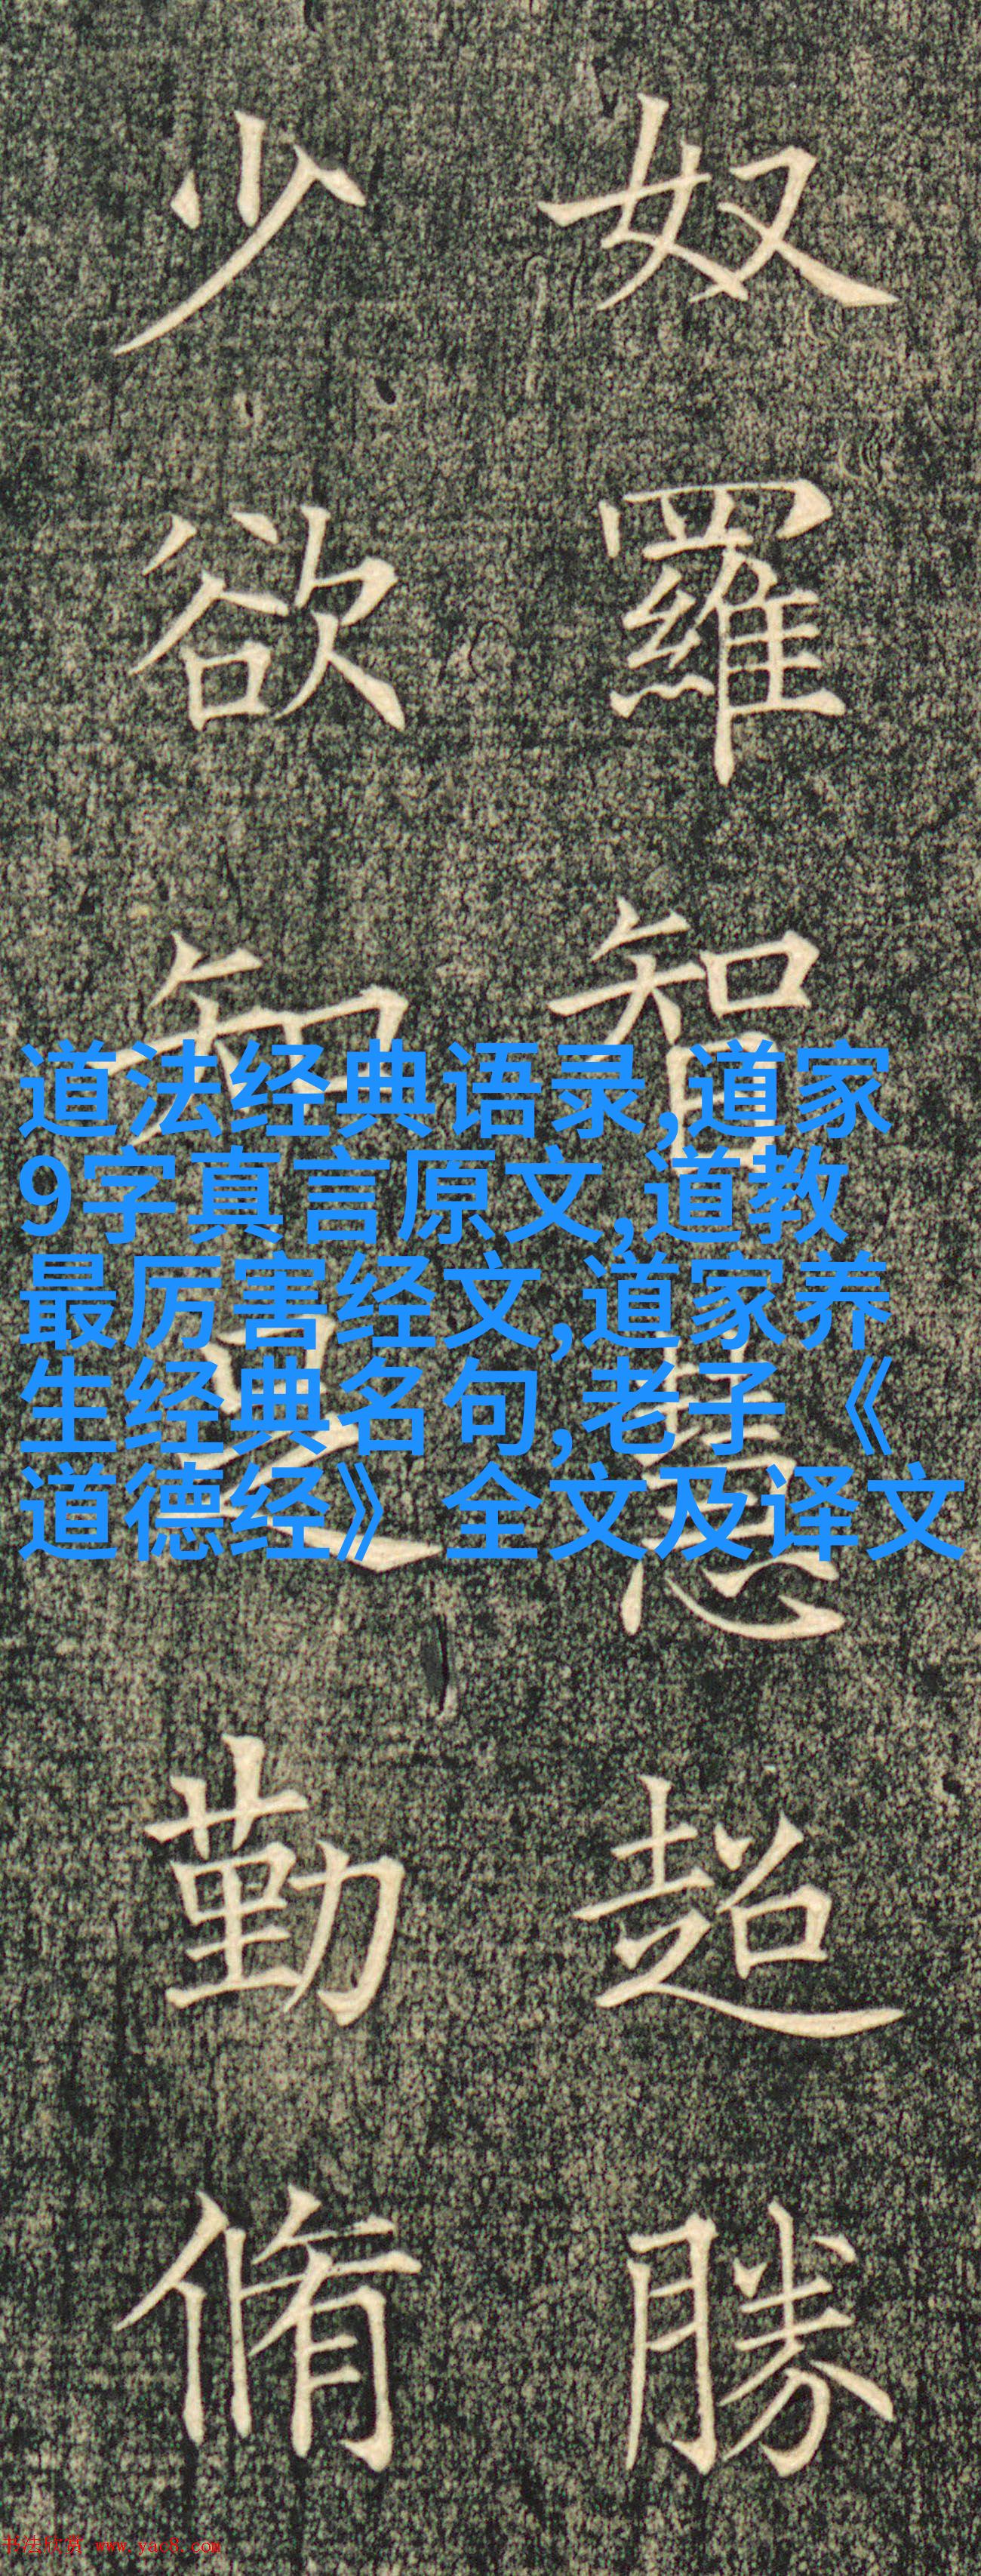 奴羅智慧超勝
少欲知足勤脩
道法经典语录,道家
9字真言原文,道教
最厉害经文,道家养
生经典名句,老子《
道德经》全文及译文
书法欣赏 www.yac8.com